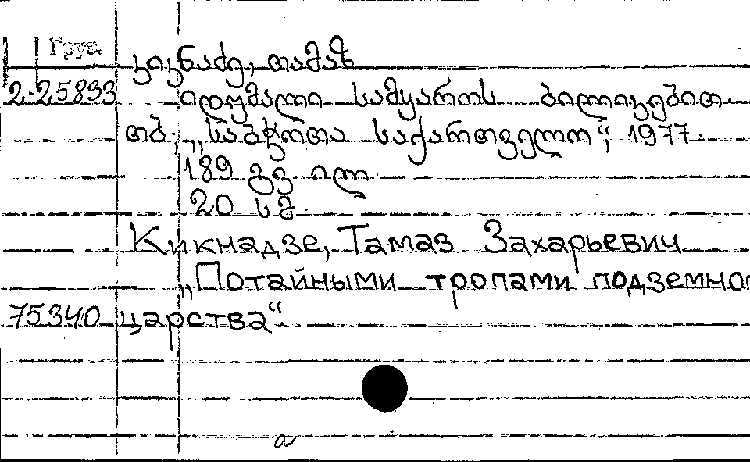 Груз.
კიკნაძე, თამაზ
2 25833 იდუმალი სამყაროს ბილიკებით
თბ, „საბჭოთა საქართველო“, 1977.
189 გვ ილ
20 სმ
Кикнадзе, Тамаз Захарьевич
„Потайными тропами подземно
75340 царства“